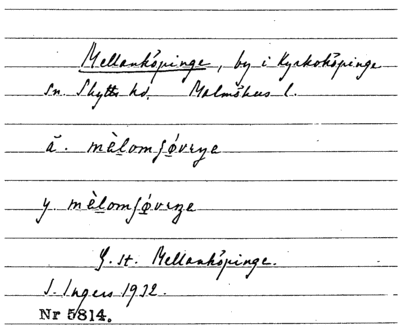 Mellanköpinge, by i Kyrkoköpinge
sn. Skytts hd. Malmöhus l.
ä. mèlomʃǿvεŋe
y mèlomʃǿvεŋe
G. st. Mellanköpinge.
I. Ingers 1932.
Nr 5814.